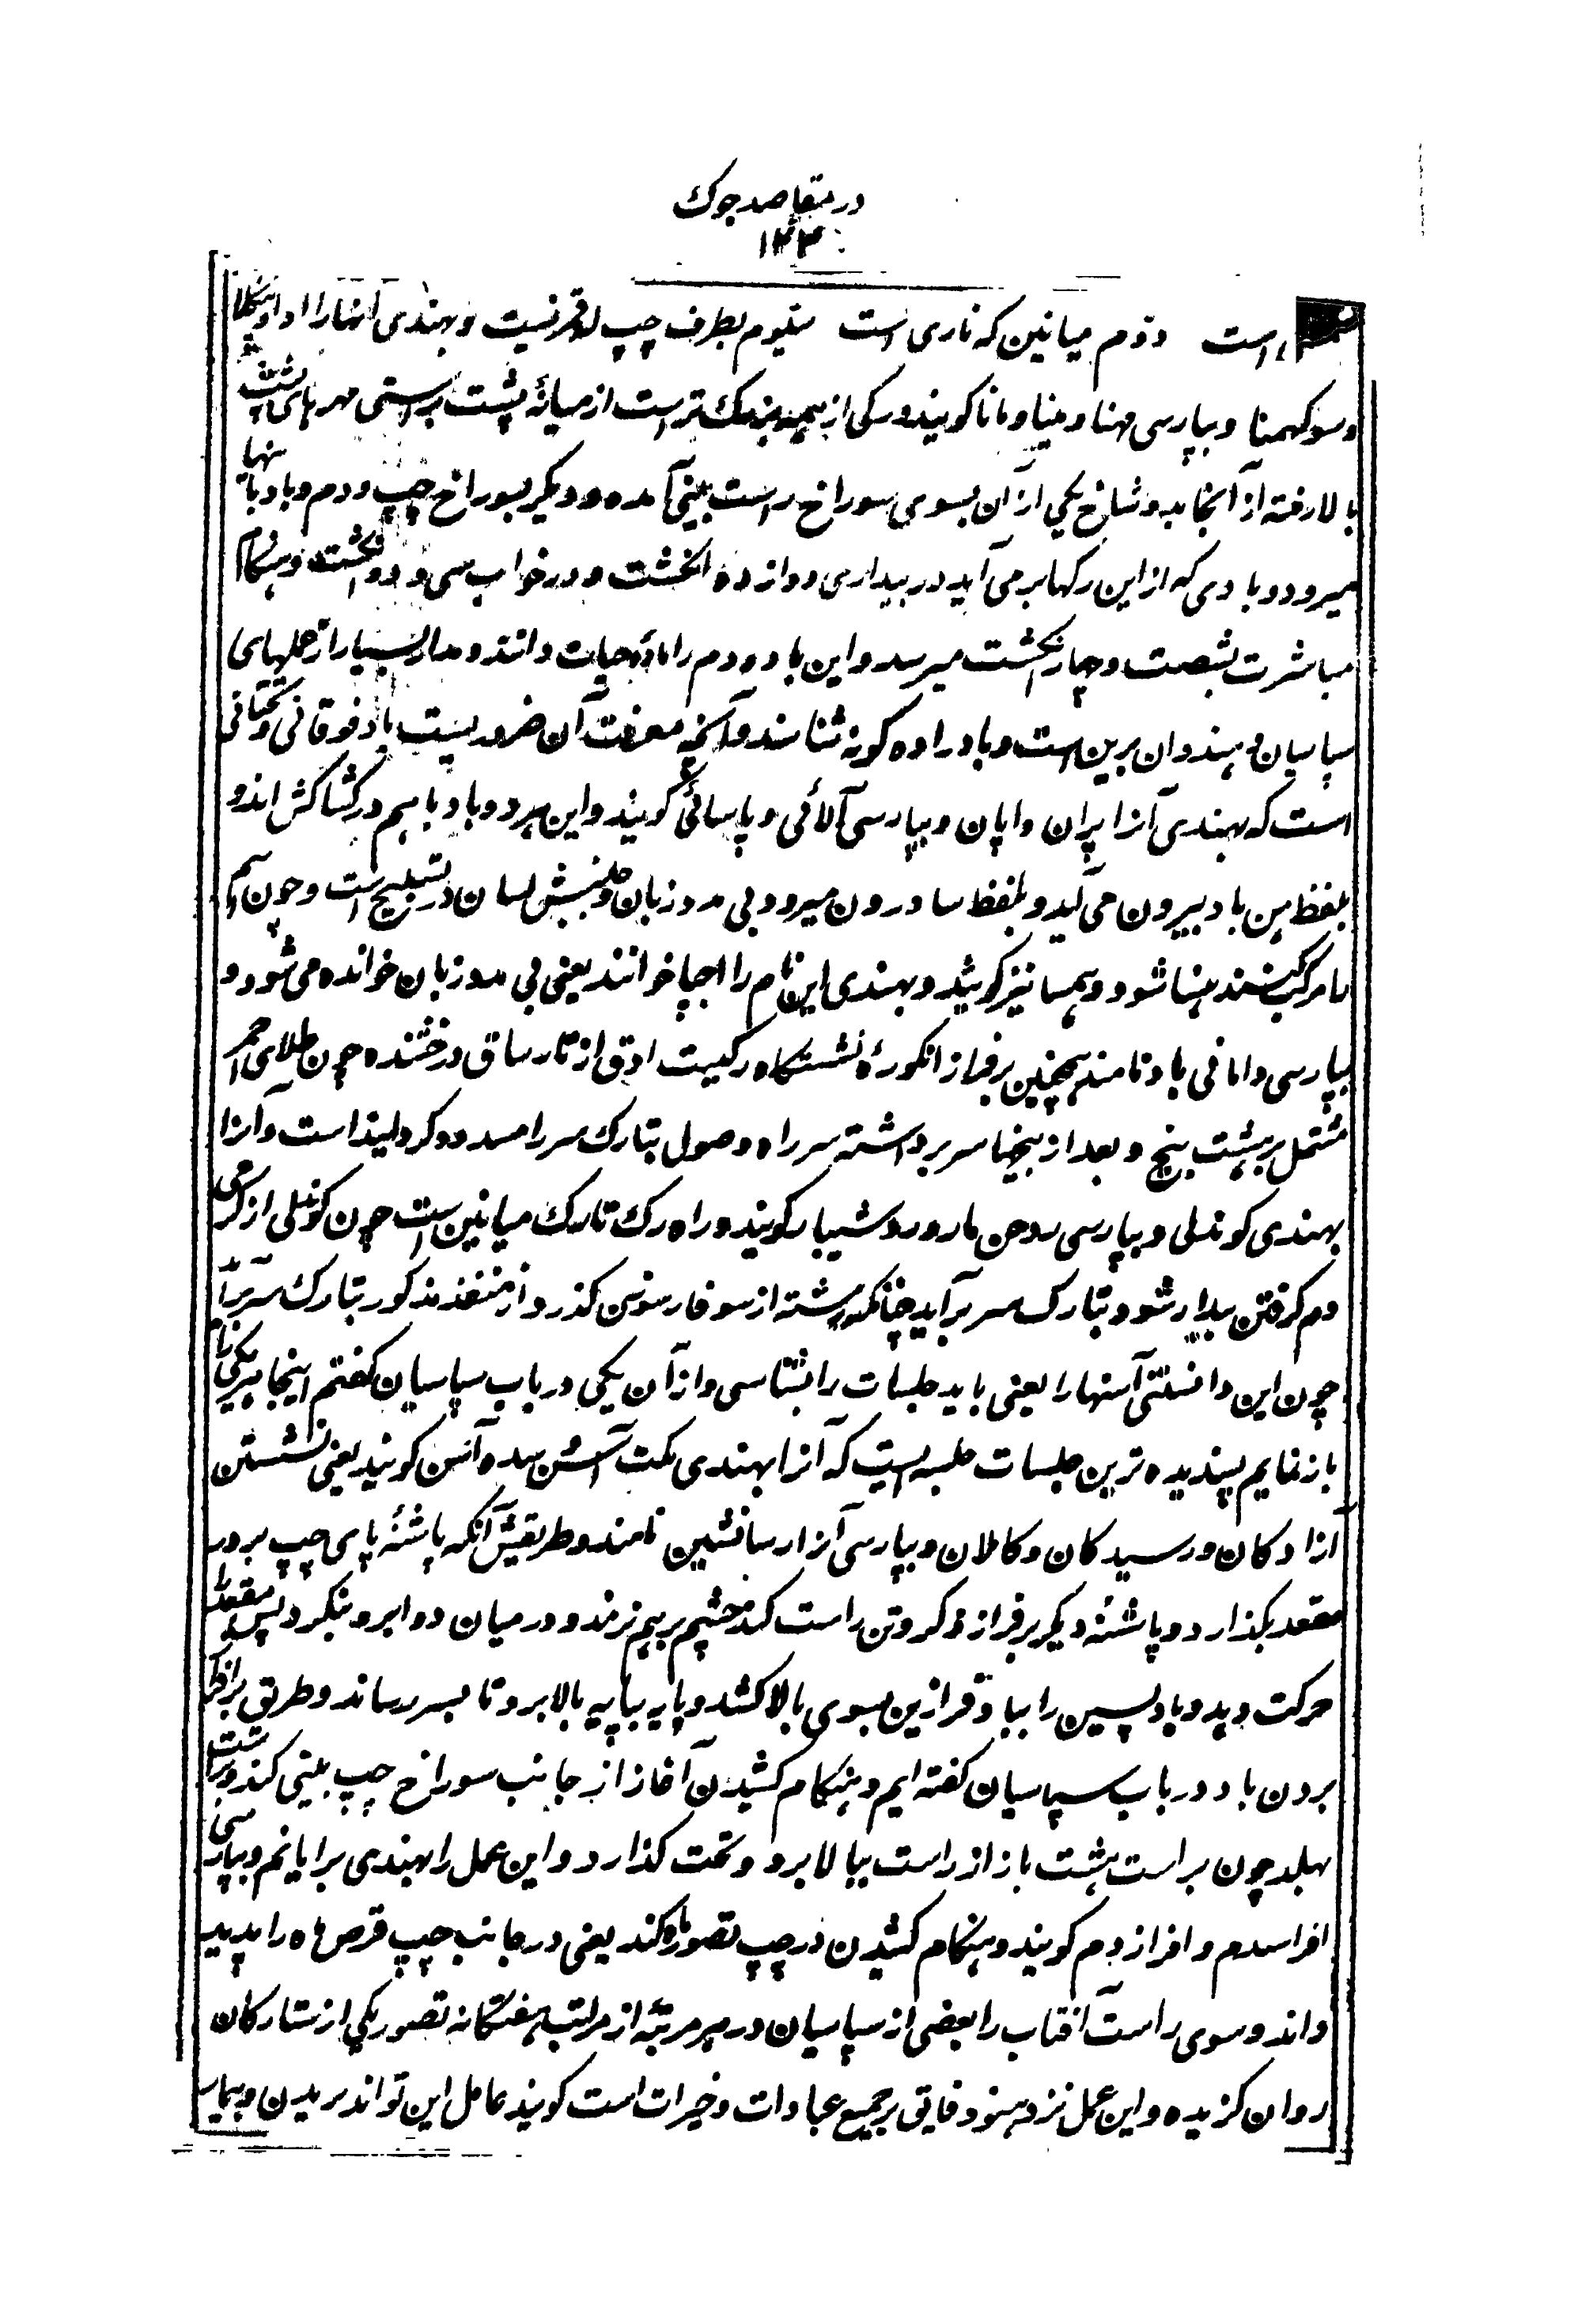 در مقاصد جوک
۱۴۳
است دوم میانین که ناری است سیوم بطرف چپ که قمریست و بهندی آنها را ادا و پنکلا
و سوکهمنا و بپارسی مهنا و مینا و مانا کویند و رکی از همه بزرک تر است از میانهٔ پشت براستی مهرهای پشت
بالا رفته از آنجا بدو شاخ یکی از آن بسوی سوراخ راست بینی آمده و دیکر بسوراخ چپ و دم و باد باینها
میرود و بادی که از این رکها بر می آید در بیداری دوازده انکشت و در خواب سی و دو انکشت و هنکام
مباشرت بشصت و چهار انکشت میرسد و این باد و دم را مادهٔ حیات دانند و مدار بسیار از عملهای
سپاسیان و هندوان برین است و باد را ده کونه شناسند و آنچه معرفت آن ضروریست باد فوقانی و تحتانی
است که بهندی آنرا پران و اپان و بپارسی آلائی و پاسائی کویند و این هر دو باد با هم در کشاکش اند و
بلفظ هن باد بیرون می آید و بلفظ سا درون میرود و بی مدد زبان و جنبش لسان در تسبیح است و چون اسم
را مرکب کنند هنسا شود و همسا نیز کویند و بهندی این نام را اجپا خوانند یعنی بی مدد زبان خوانده می شود و
بپارسی دانای باد نامند همچنین بر فراز انکورهٔ نشستکاه رکیست ادق از تار ساق درخشنده چون طلای احمر
مشتمل بر هشت پنچ و بعد از بیخها سر برداشته سر راه وصول بتارک سر را مسدود کردانیده است و آنرا
بهندی کوندلی و بپارسی رودمار و رودشیبار کویند و راه رک تارک میانین است چون کوندلی از کرمی
دم کرفتن بیدار شود و بتارک سر برآید چنانکه رشته از سوفار سوزن کذرد از منفذ مذکور بتارک سر برآید
چون این دانستی آسنها را یعنی باید جلسات را بشناسی و از آن یکی در باب سپاسیان کفتم اینجا هر یکی را
باز نمایم پسندیده ترین جلسات جلسه ایست که آنرا بهندی مکت آسن سده آسن کویند یعنی نشستن
آزادکان و رسیدکان و کاملان و بپارسی آنرا رسانشین نامند و طریقش آنکه پاشنهٔ پای چپ بر در
مقعد بکذارد و پاشنهٔ دیکر بر فراز ذکر و تن راست کند چشم بر هم نزند و در میان دو ابرو بنکرد پس مقعد را
حرکت دهد و باد پسین را با باد فرازین بسوی بالا کشد و پایه بپایه بالا برد تا بسر رساند و طریق برافراز
بردن باد در باب سپاسیان کفته ایم و هنکام کشیدن آغاز از جانب سوراخ چپ بینی کند و براست
بهلد چون براست بهشت باز از راست ببالا برد و تحت کذارد و این عمل را بهندی برایانم و بپارسی
افراسدم و افرازدم کویند و هنکام کشیدن در چپ تصور ماه کند یعنی در جانب چپ قرص ماه را پدید
داند و سوی راست آفتاب را بعضی از سپاسیان در هر مرتبهٔ از مراتب هفتکانه تصور یکی از ستارکان
روان کزیده و این عمل نزد هنود فایق بر جمیع عبادات و خیرات است کویند عامل این تواند پریدن و بیمار